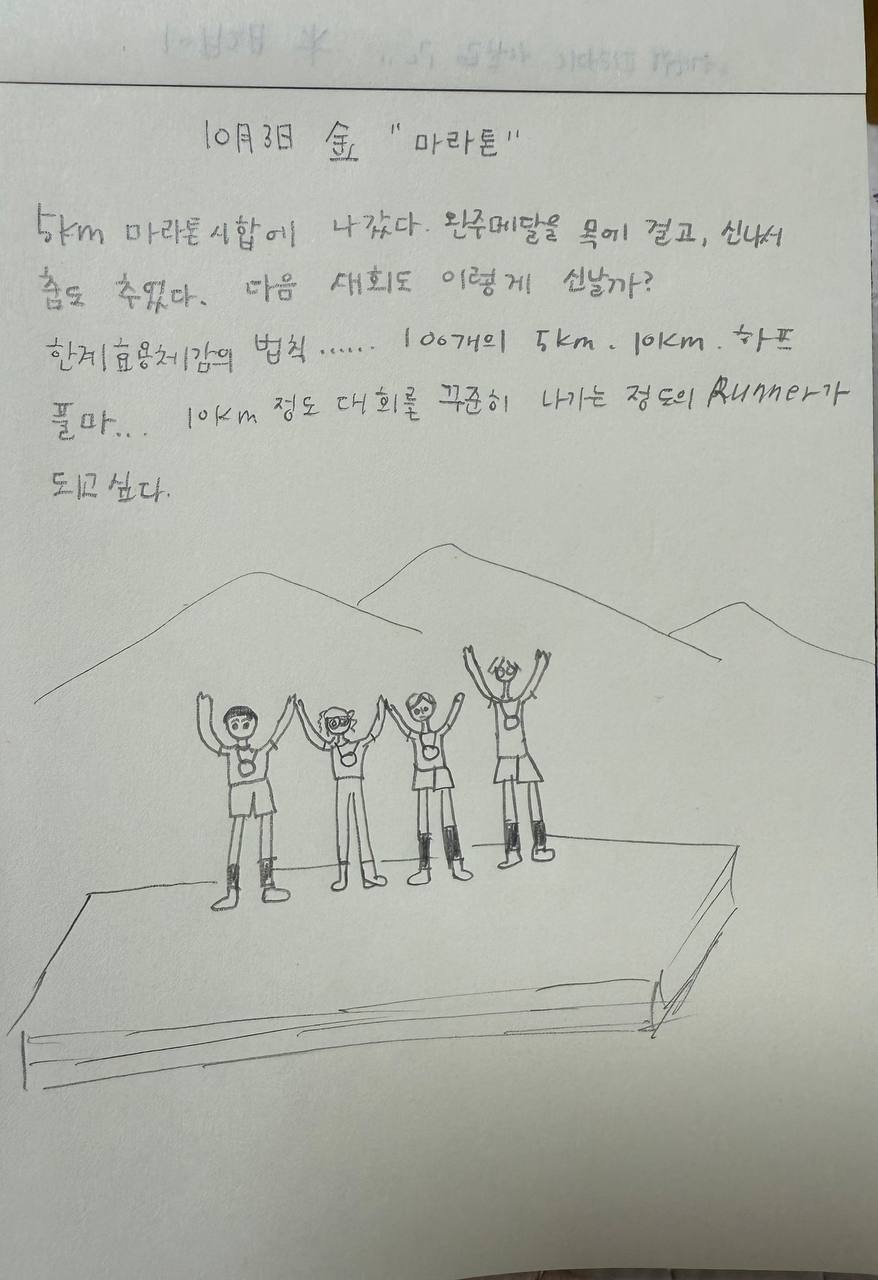 10月3日 金 "마라톤"
5km 마라톤시합에 나갔다. 완주메달을 목에 걸고, 신나서
춤도 추었다. 다음 대회도 이렇게 신날까?
한계효용체감의 법칙...... 100개의 5km. 10km. 하프
풀마... 10km 정도 대회를 꾸준히 나가는 정도의 Runner가
되고싶다.